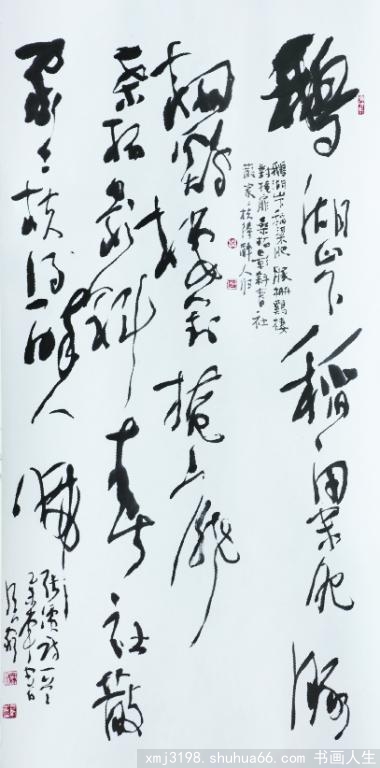 鵝湖山下稻粱肥豚
栅鷄棲對掩扉
桑柘影斜春社散
家家扶得醉人歸
鵝湖山下稻粱肥豚栅鷄棲
對掩扉桑柘影斜春社
散家家扶得醉人歸
張演詩一首
乙未
xmj3198.shuhua66.com 书画人生